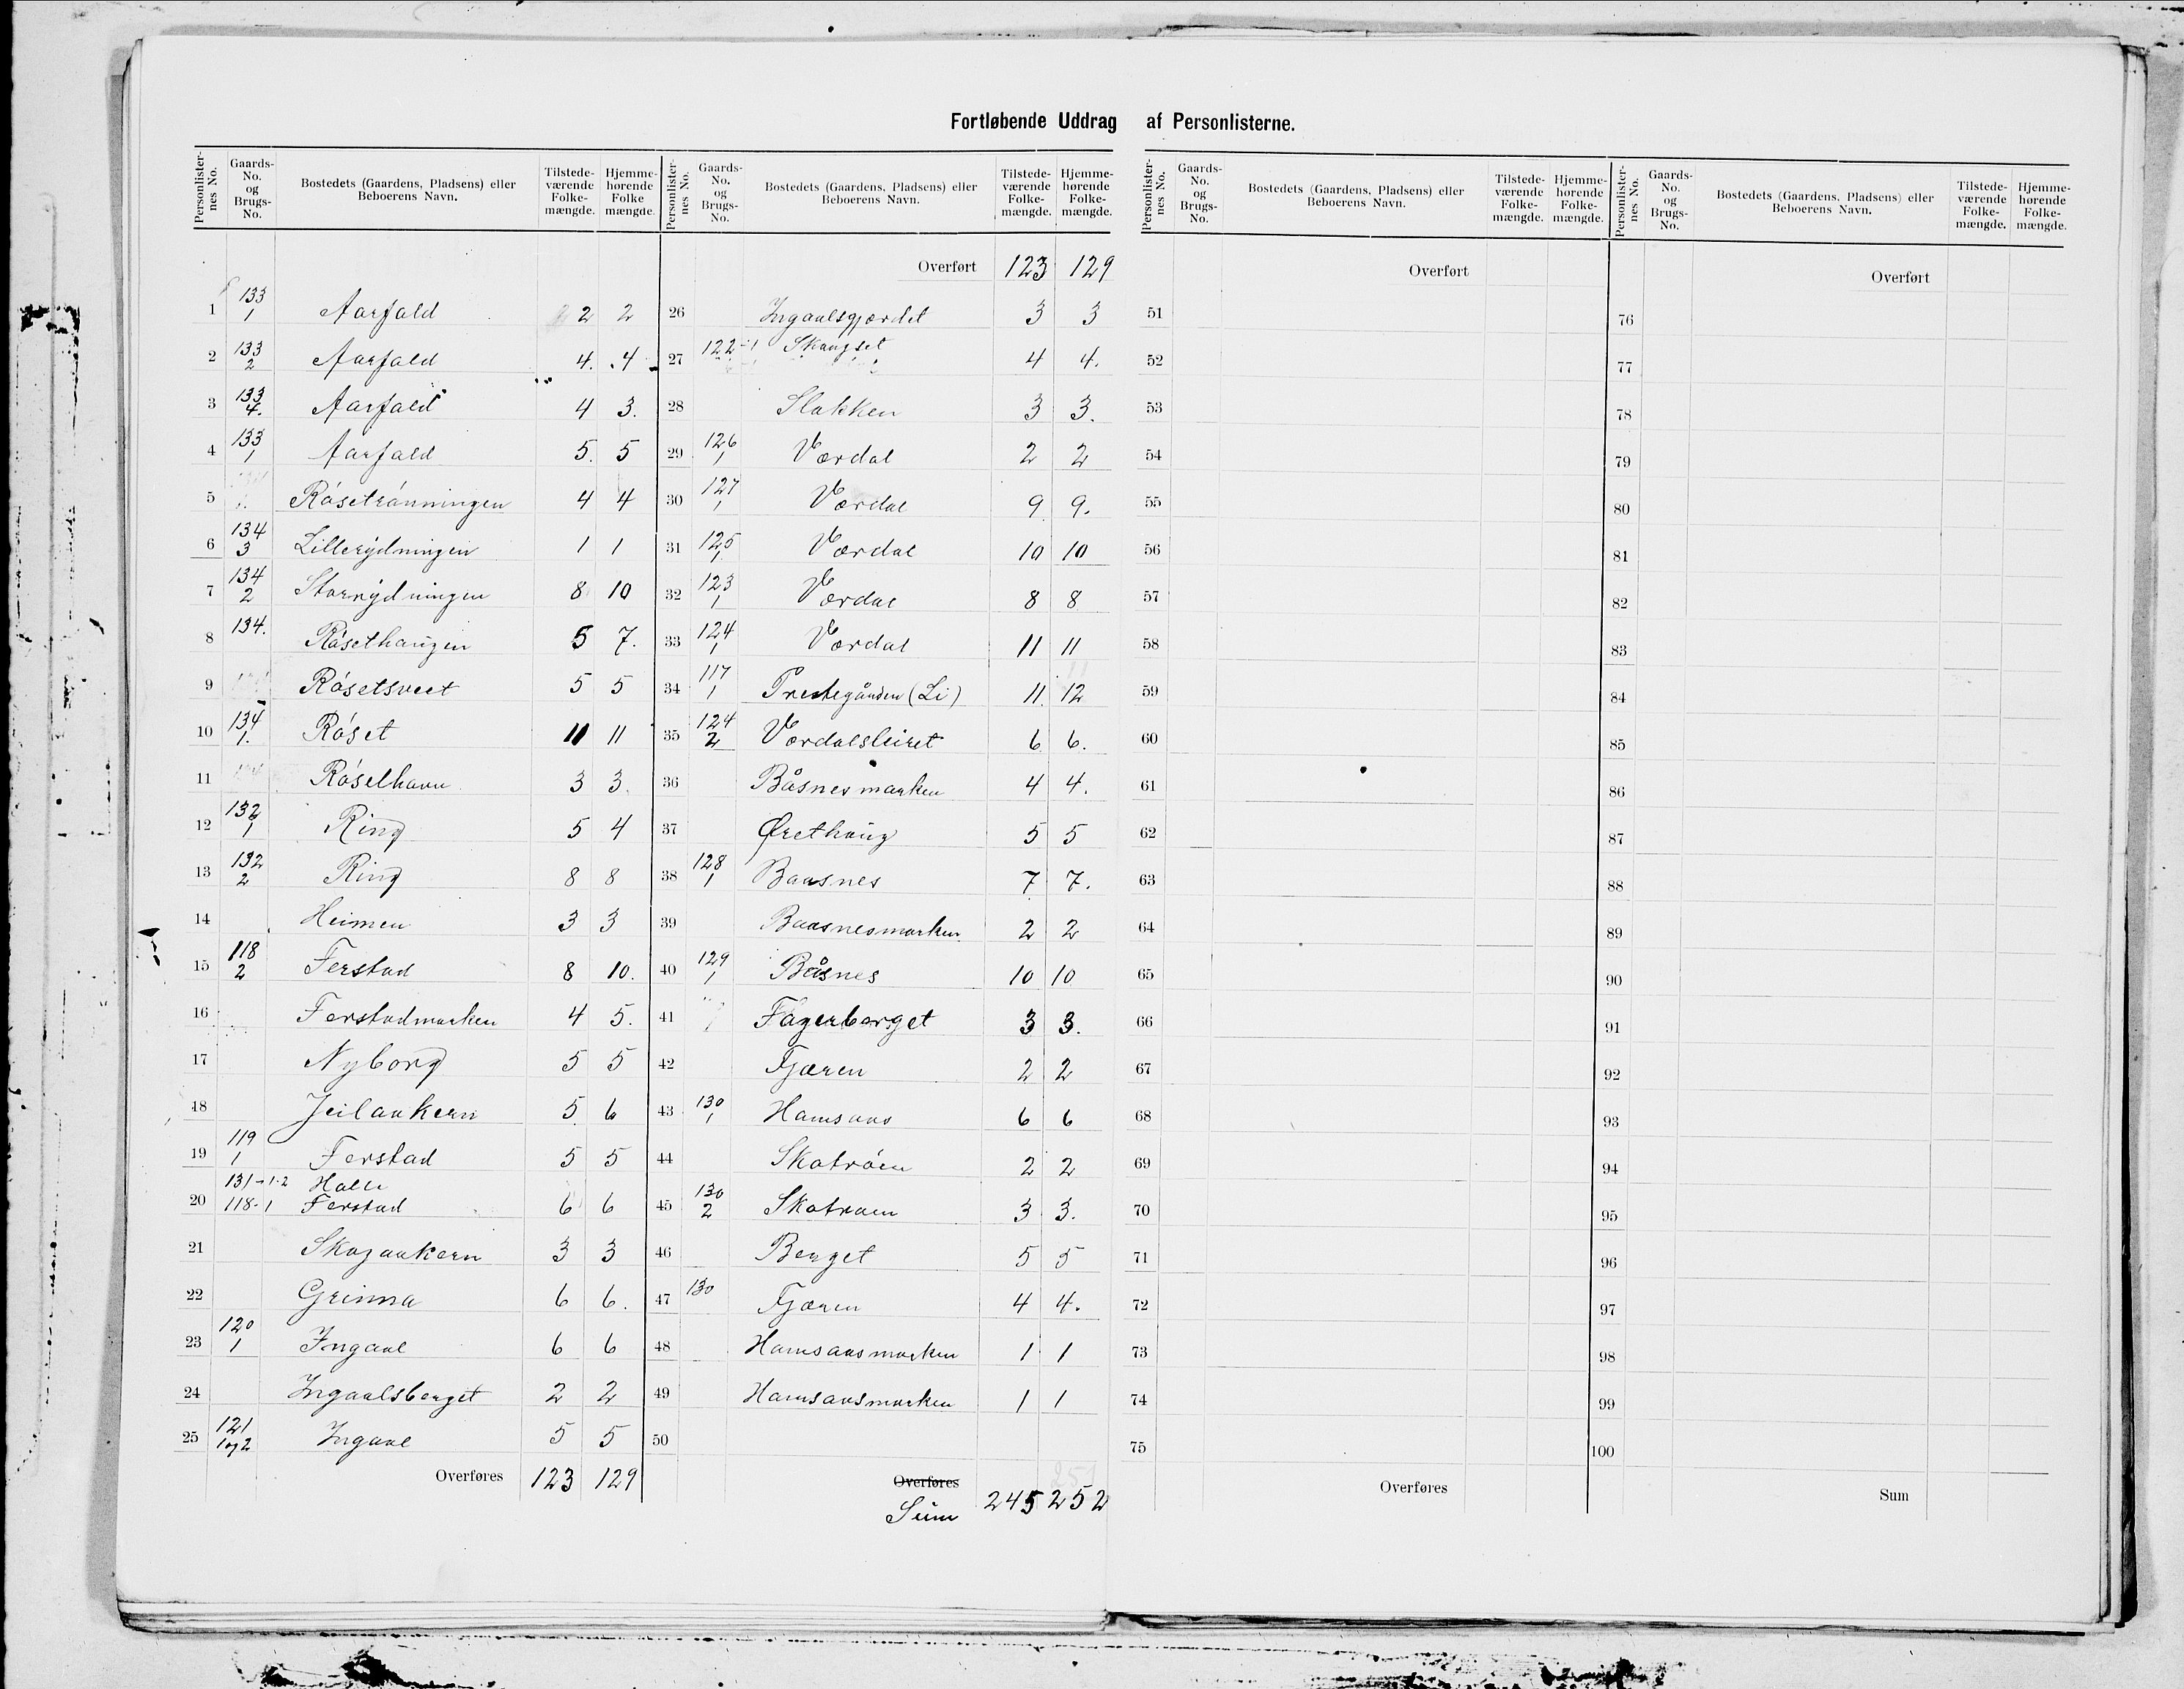 Fortløbende Uddrag af Personlisterne.
Personlister-nes No. Gaards-No. og Brugs-No. Bostedets (Gaardens, Pladsens) eller Beboerens Navn. Tilstede-værende Folke-mængde. Hjemme-hørende Folke mængde.
1 133/1 Aarfald 2 2
2 133/2 Aarfald 4. 4
3 133/4. Aarfald 4 3.
4 133/1 Aarfald 5. 5
5 Röseträönningen 4 4
6 134/3 Lillerydningen 1 1
7 134/2 Storrydningen 8 10
8 134. Rösethaugen 5 7.
9 Rösetsveet 5 5
10 134/1. Röset 11 11
11 Rösethavn 3 3.
12 132/1 Ring 5 4
13 132/2 Ring 8 8
14 Heimen 3 3
15 118/2 Ferstad 8 10.
16 Ferstadmarken 4 5.
17 Nyborg 5 5
18 Jeilaakern 5. 6
19 119/1 Ferstad 5 5
131-1-2 Halle
20 118-1 Ferstad 6 6
21 Skogaakern 3 3
22 Grinna 6 6.
23 120/1 Ingaal 6 6
24 Ingaalsberget 2 2
25 121/1og2 Ingaal 5 5
Overføres 123 129
Personlister-nes No. Gaards-No. og Brugs-No. Bostedets (Gaardens, Pladsens) eller Beboerens Navn. Tilstede-værende Folke-mængde. Hjemme-hørende Folke-mængde.
Overført 123 129
26 Ingaalsgjærdet 3 3
27 122-1 Skaugset 4 4.
28 Slakken 3 3.
29 126/1 Værdal 2 2
30 127/1 Værdal 9 9.
31 125/1. Værdal 10 10
32 123/1 Værdal 8 8
33 124/1 Værdal 11 11
34 117/1 Prestegården (Li) 11. 12
35 124/2 Værdalsleiret 6 6.
36 Båsnesmarken 4 4.
37 Ørethaug 5 5
38 128/1 Baasnes 7 7.
39 Baasnesmarken 2 2
40 129/1 Båsnes 10 10
41 Fagerberget 3 3.
42 Tjæren 2 2
43 130/1 Hamsaas 6 6
44 Skatröen 2 2
45 130/2 Skatraen 3 3.
46 Berget 5 5
47 130 Tjæren 4 4.
48 Hamsaasmarken 1 1
49 Hamsaasmarken 1 1
50
Overføres
Sum 245 252
Personlister-nes No. Gaards-No. og Brugs-No. Bostedets (Gaardens, Pladsens) eller Beboerens Navn. Tilstede-værende Folke-mængde. Hjemme-hørende Folke-mængde.
Overført
51
52
53
54
55
56
57
58
59
60
61
62
63
64
65
66
67
68
69
70
71
72
73
74
75
Overføres
Personlister-nes No. Gaards-No. og Brugs-No. Bostedets (Gaardens, Pladsens) eller Beboerens Navn. Tilstede-værende Folke-mængde. Hjemme-hørende Folke-mængde.
Overført
76
77
78
79
80
81
82
83
84
85
86
87
88
89
90
91
92
93
94
95
96
97
98
99
100
Sum